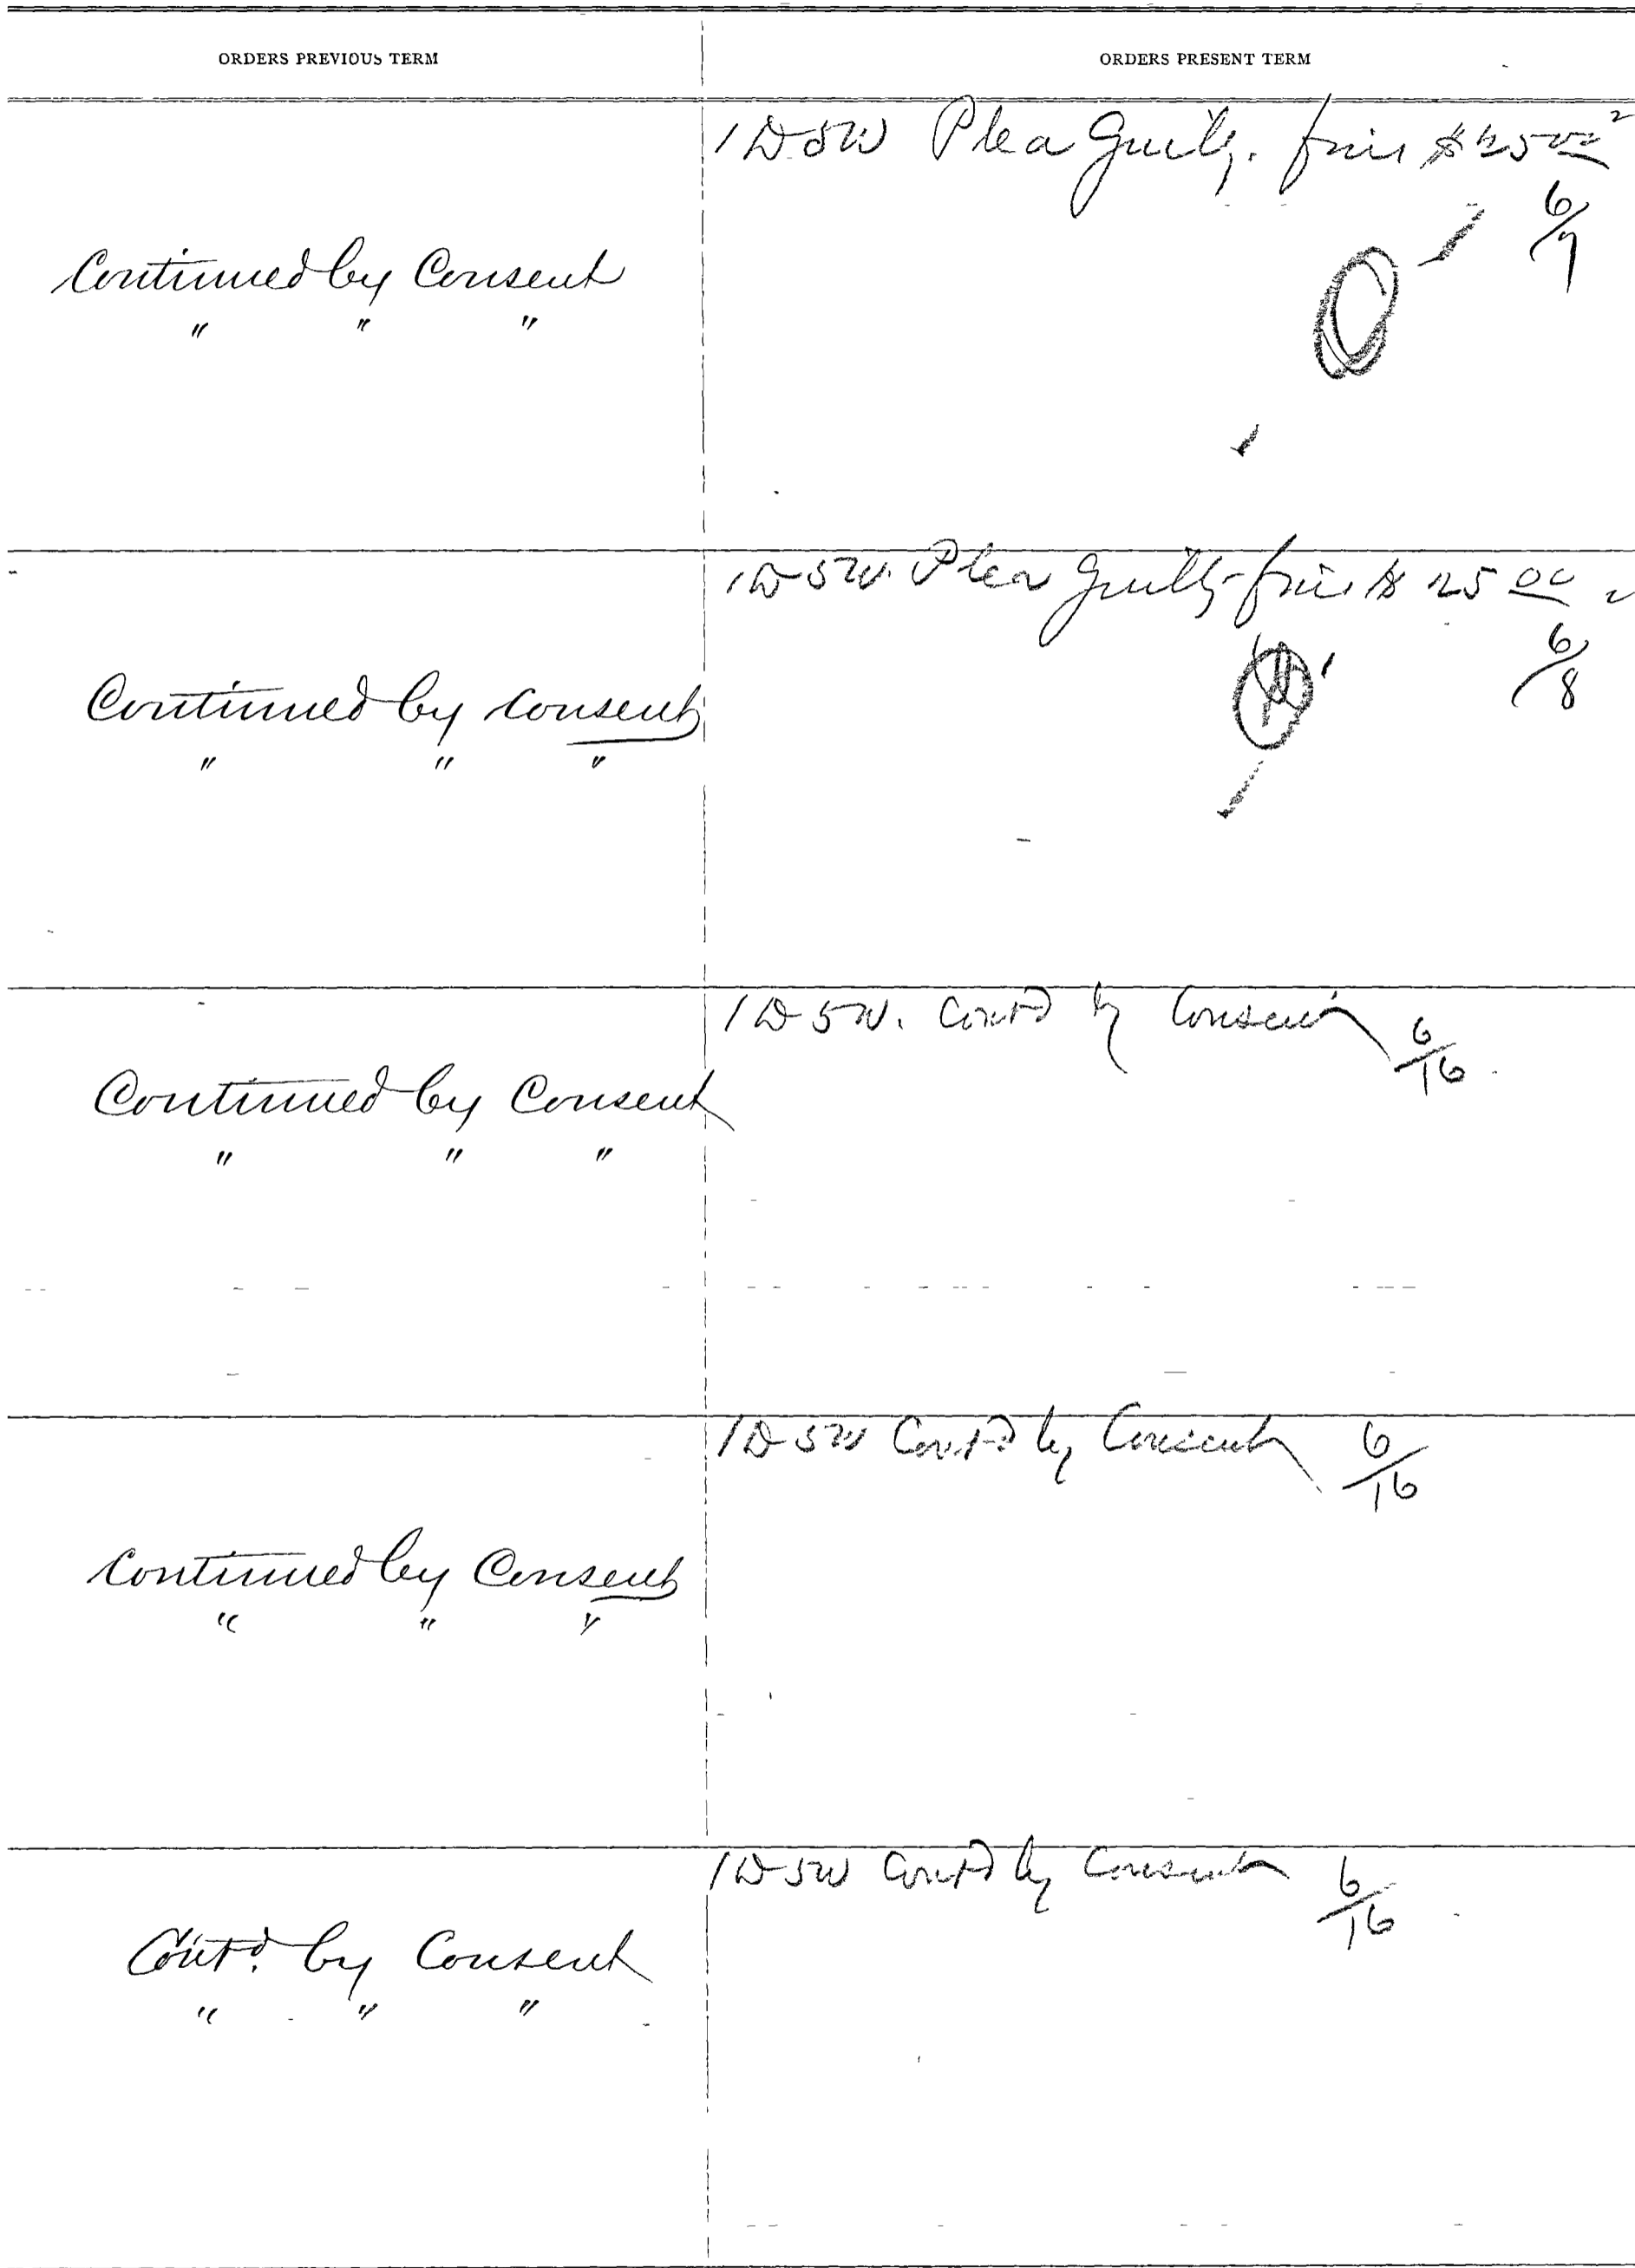 ORDERS PREVIOUS TERM
ORDERS PRESENT TERM
1D 5W Plea Guilty. fine $25 00
6/7
Continued by Consent
" " "
1D 5W. Plea Guilty fine $25 00
6/8
Continued by Consent
" " "
1D 5W. Cont'd by Consent 6/16
Continued by Consent
" " "
1D 5W Cont'd by Consent 6/16
Continued by Consent
" " "
1D 5W Cont'd by Consent 6/16
Cont'd. by Consent
" " "